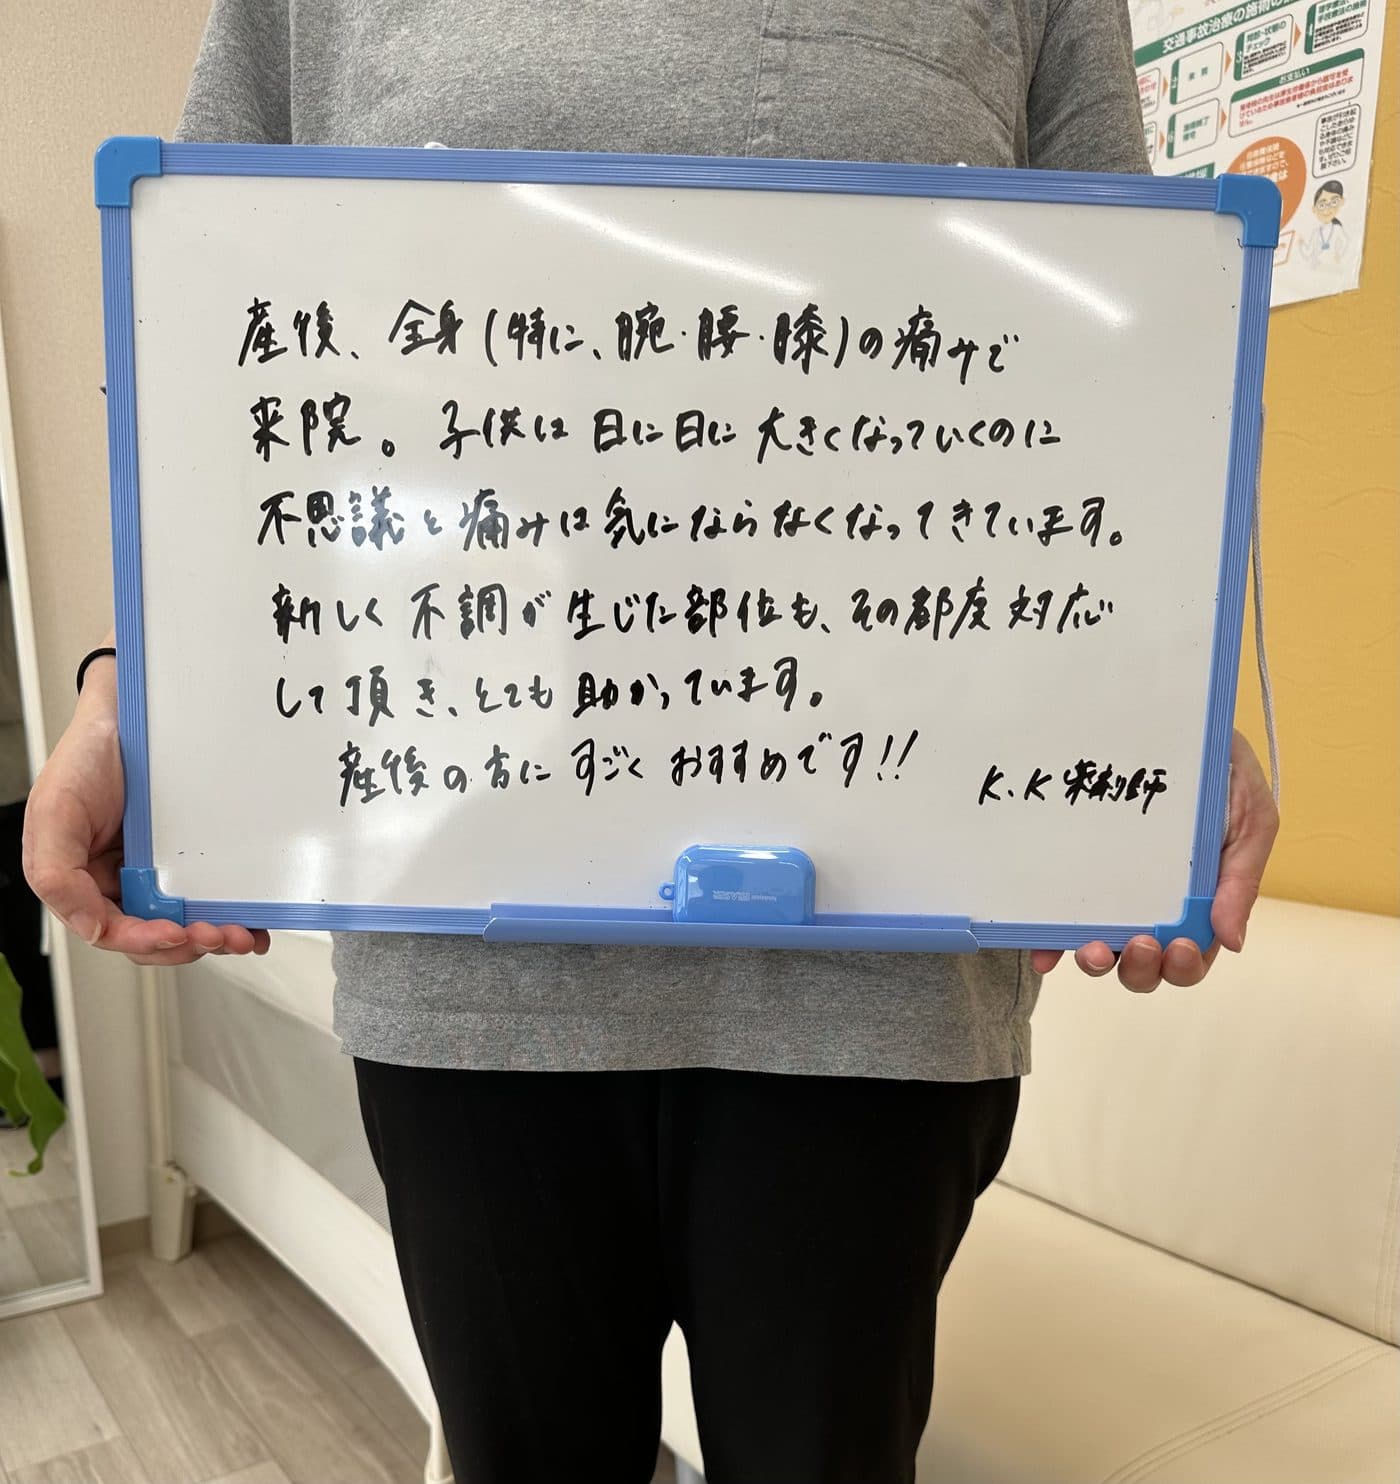 産後、全身(特に、腕・腰・膝)の痛みで
来院。子供は日に日に大きくなっていくのに
不思議と痛みは気にならなくなってきています。
新しく不調が生じた部位も、その都度対応
して頂き、とても助かっています。
産後の方にすごくおすすめです!!
K.K 薬剤師
交通事故治療の施術の
お支払い